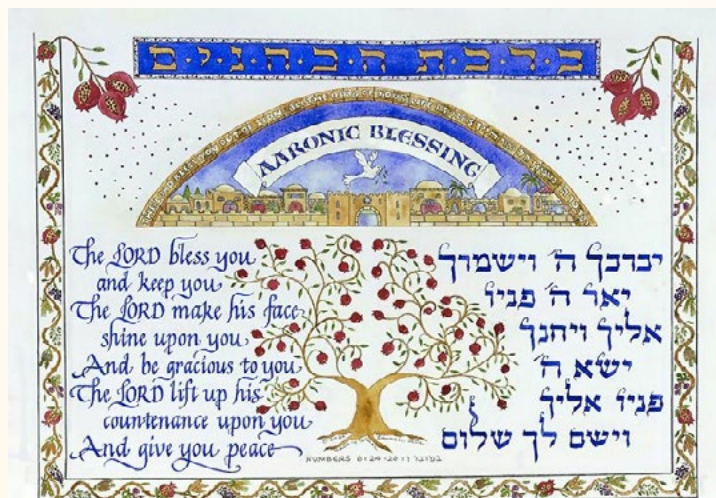 ברכת הכהנים
AARONIC BLESSING
The LORD bless you
and keep you
The LORD make his face
shine upon you
And be gracious to you
The LORD lift up his
countenance upon you
And give you peace
יברכך ה׳ וישמרך
יאר ה׳ פניו
אליך ויחנך
ישא ה׳
פניו אליך
וישם לך שלום
NUMBERS 6:24-26
במדבר